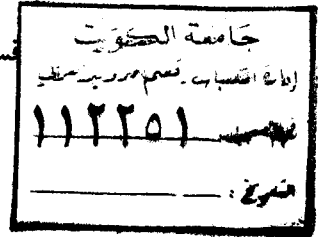 جامعة الكويت
إدارة المكتبات - قسم
١١٢٢٥١
التاريخ :